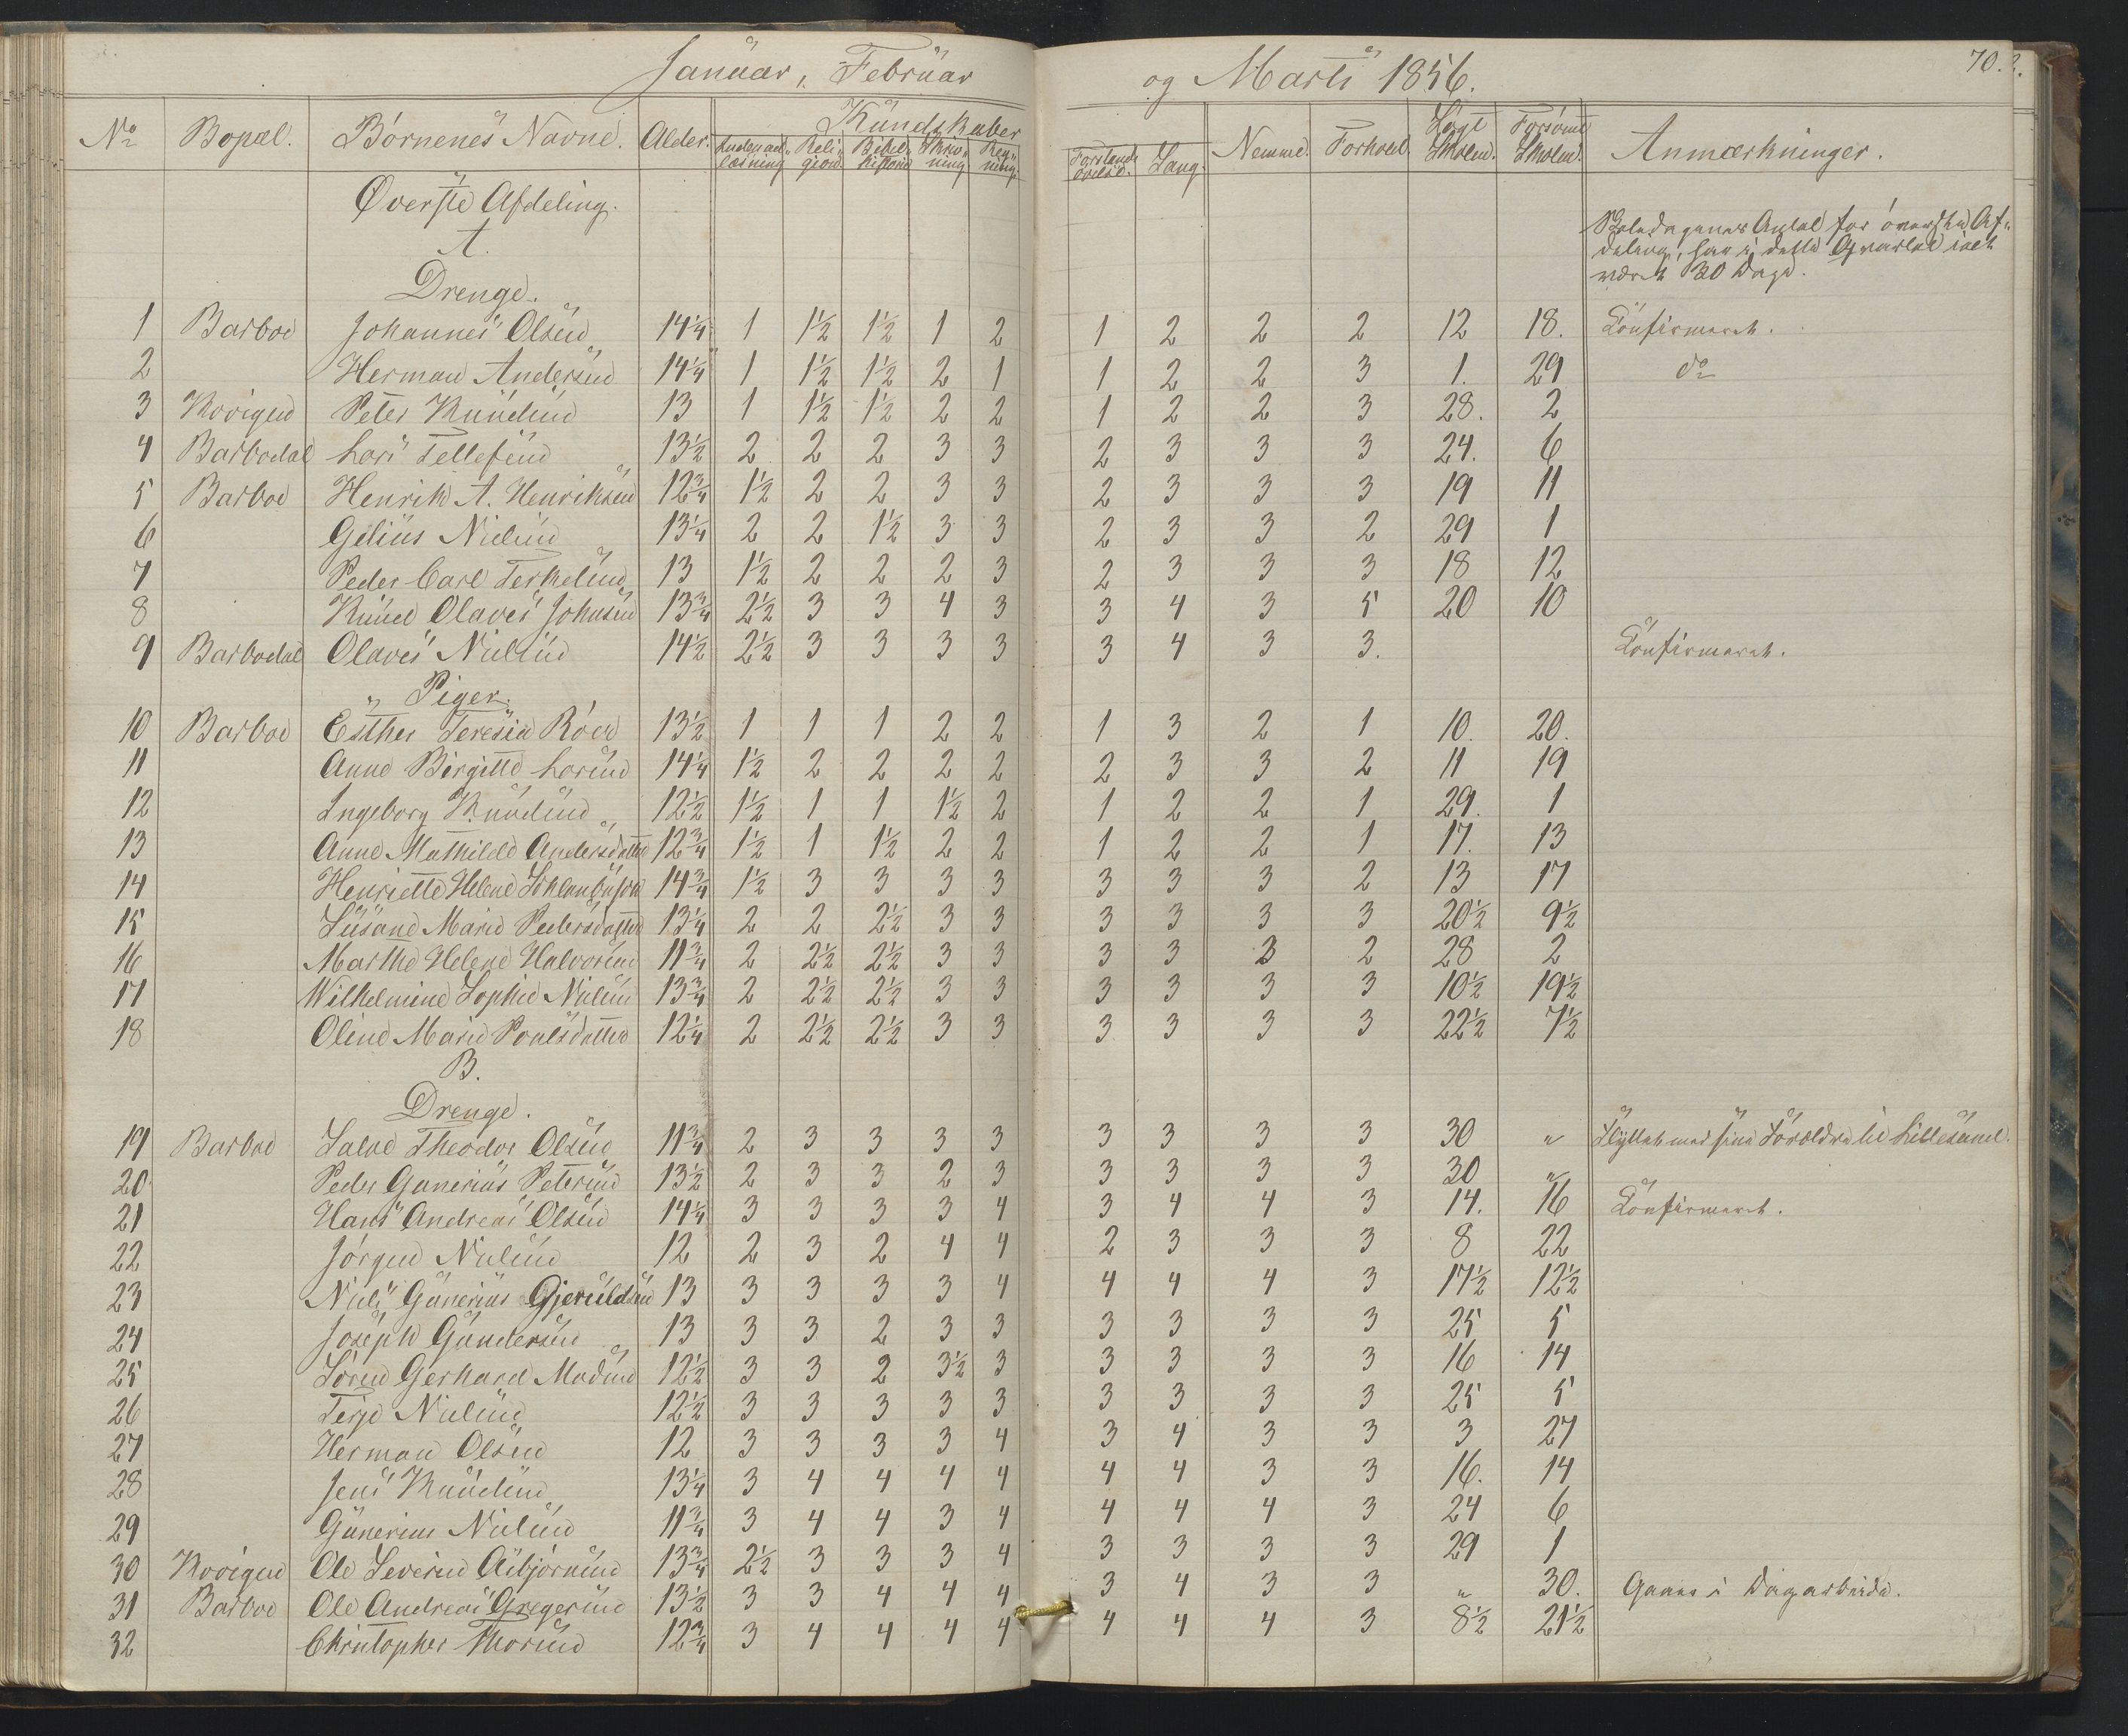 Januar, Februar og Marts 1856. 70.
No Bopæl. Børnenes Navne. Alder. Kundskaber Nemme. Forhold. Søgt Skolen. Forsømt Skolen. Anmærkninger.
Indenadlæsning Religion Bibelhistorie Skrivning Regning Forstandsøvelse. Sang.
Øverste Afdeling.
A.
Skoledagenes Antal for øverste Af-
deling, har i dette Qvartal ialt
været 30 Dage.
Drenge.
1 Barboe Johannes Olsen 14 1/4 1 1 1/2 1 1/2 1 2 1 2 2 2 12 18. Confirmeret.
2 Herman Andersen 14 1/4 1 1 1/2 1 1/2 2 1 1 2 2 3 1. 29 do
3 Kovigen Peter Knudsen 13 1 1 1/2 1 1/2 2 2 1 2 2 3 28. 2
4 Barbodal Lars Tellefsen 13 1/2 2 2 2 3 3 2 3 3 3 24. 6
5 Barboe Henrik A. Henriksen 12 3/4 1 1/2 2 2 3 3 2 3 3 3 19 11
6 Gelius Nielsen 13 1/4 2 2 1 1/2 3 3 2 3 3 2 29 1
7 Peder Carl Terkelsen 13 1 1/2 2 2 2 3 2 3 3 3 18 12
8 Knud Olaves Johnsen 13 3/4 2 1/2 3 3 4 3 3 4 3 5 20 10
9 Barbodal Olaves Nielsen 14 1/2 2 1/2 3 3 3 3 3 4 3 3. Confirmeret.
Piger.
10 Barboe Esther Teresia Röer 13 1/2 1 1 1 2 2 1 3 2 1 10. 20.
11 Anne Birgitte Larsen 14 1/4 1 1/2 2 2 2 2 2 3 3 2 11 19
12 Ingeborg Knudsen 12 1/2 1 1/2 1 1 1 1/2 2 1 2 2 1 29. 1
13 Anne Mathilde Andersdatter 12 3/4 1 1/2 1 1 1/2 2 2 1 2 2 1 17. 13
14 Henriette Helene 14 3/4 1 1/2 3 3 3 3 3 3 3 2 13 17
15 Susane Marie Pedersdatter 13 1/4 2 2 2 1/2 3 3 3 3 3 3 20 1/2 9 1/2
16 Marthe Helene Halvorsen 11 3/4 2 2 1/2 2 1/2 3 3 3 3 3 2 28 2
17 Wilhelmine Sophie Nielsen 13 3/4 2 2 1/2 2 1/2 3 3 3 3 3 3 10 1/2 19 1/2
18 Oline Marie Poulsdatter 12 1/4 2 2 1/2 2 1/2 3 3 3 3 3 3 22 1/2 7 1/2
B.
Drenge.
19 Barboe Salve Theodor Olsen 11 3/4 2 3 3 3 3 3 3 3 3 30 " Flyttet med sine Forældre til Lillesand.
20 Peder Gunerius Petersen 13 1/2 2 3 3 2 3 3 3 3 3 30 "
21 Hans Andreas Olsen 14 1/4 3 3 3 3 4 3 4 4 3 14. 16 Confirmeret.
22 Jörgen Nielsen 12 2 3 2 4 4 2 3 3 3 8 22
23 Niels Gunerius Gjeruldsen 13 3 3 3 3 4 4 4 4 3 17 1/2 12 1/2
24 Joseph Gundersen 13 3 3 2 3 3 3 3 3 3 25 5
25 Sören Gerhard Madsen 12 1/2 3 3 2 3 1/2 3 3 3 3 3 16 14
26 Terje Nielsen 12 1/2 3 3 3 3 3 3 3 3 3 25 5
27 Herman Olsen 12 3 3 3 3 4 3 4 3 3 3 27
28 Jens Knudsen 13 1/4 3 4 4 4 4 4 4 3 3 16. 14
29 Gunerius Nielsen 11 3/4 3 4 4 3 4 4 4 4 3 24 6
30 Kovigen Ole Severin Asbjørnsen 13 3/4 2 1/2 3 3 3 4 3 3 3 3 29 1
31 Barboe Ole Andreas Gregersen 13 1/2 3 3 4 4 4 3 4 3 3 " 30. Gaaer i Dagarbeide.
32 Christopher Thorsen 12 3/4 3 4 4 4 4 4 4 4 3 8 1/2 21 1/2